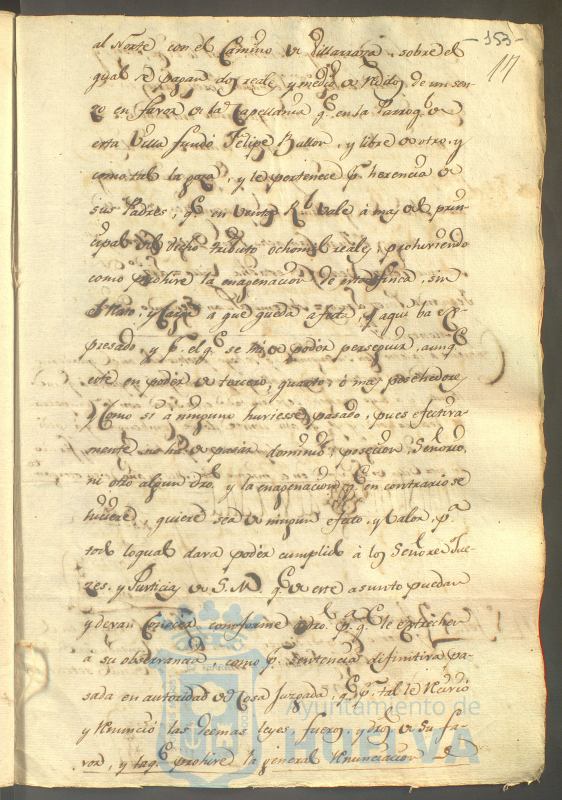 -153-
117
al Norte con el Camino de Villarrasa, sobre el
qual se pagan dos reales y medio de Redito de un sen-
zo en favor de la Capellania q.e en la Parroq.l de
esta Villa fundó Felipe Bullon, y libre de otro, y
como tal la goza, y le pertenece p.r herencia de
sus Padres; q.e en Vale a mas del prin-
cipal del dicho tributo ochomil reales, prohiviendo
como prohive la enagenacion de esta finca, sin
el y Carga a que queda afecta, y aqui va ex-
presado, y p.r el q.e se ha de poder perseguir, aunq.e
esté en poder de tercero, quarto, ó mas posehedores
y Como si a ninguno huviesse pasado, pues efectiva-
mente no ha de pasar dominio, posecion, Señorio,
ni otro algun dro. y la enagenacion q.e en contrario se
huciere quiere sea de ningun efecto, y valor, p.a
todo loqual dava poder cumplido à los Señores Jue-
zes, y Justicias de S. M. q.e de este asunto puedan
y devan Conocer comforme a dro. p.a q.e le extrechen
a su observancia como p.r sentencia difinitiva pa-
sada en autoridad de Cosa Juzgada, q.e p.r tal lo Recivió
y Renunció las demas leyes, fueros, y dros. de su fa-
vor, y la q.e prohive la general Renunciacion de
Ayuntamiento de
HUELVA